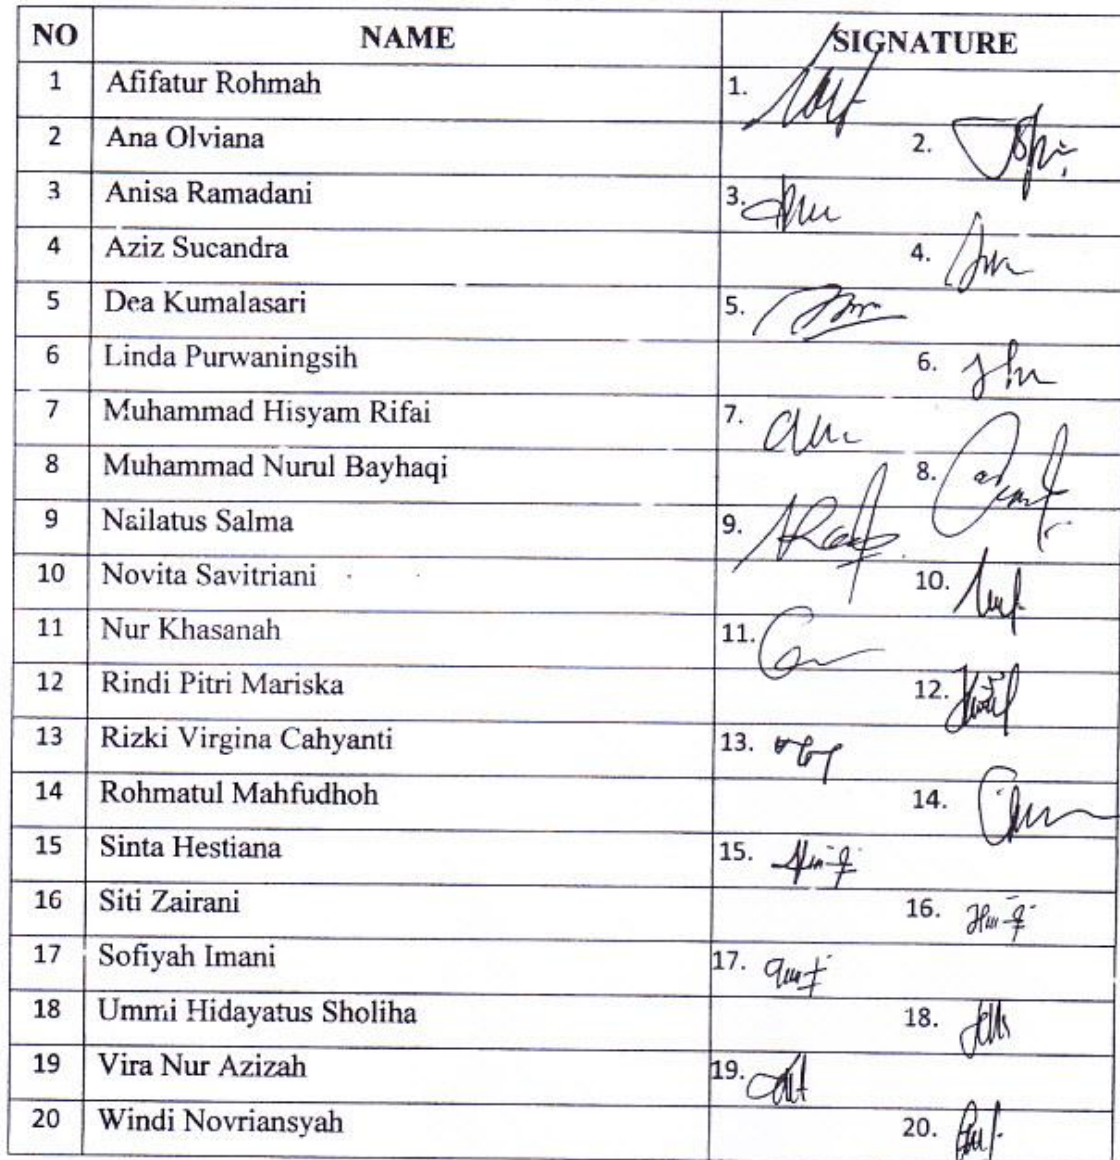 NO NAME SIGNATURE
1 Afifatur Rohmah 1.
2 Ana Olviana 2.
3 Anisa Ramadani 3.
4 Aziz Sucandra 4.
5 Dea Kumalasari 5.
6 Linda Purwaningsih 6.
7 Muhammad Hisyam Rifai 7.
8 Muhammad Nurul Bayhaqi 8.
9 Nailatus Salma 9.
10 Novita Savitriani 10.
11 Nur Khasanah 11.
12 Rindi Pitri Mariska 12.
13 Rizki Virgina Cahyanti 13.
14 Rohmatul Mahfudhoh 14.
15 Sinta Hestiana 15.
16 Siti Zairani 16.
17 Sofiyah Imani 17.
18 Ummi Hidayatus Sholiha 18.
19 Vira Nur Azizah 19.
20 Windi Novriansyah 20.